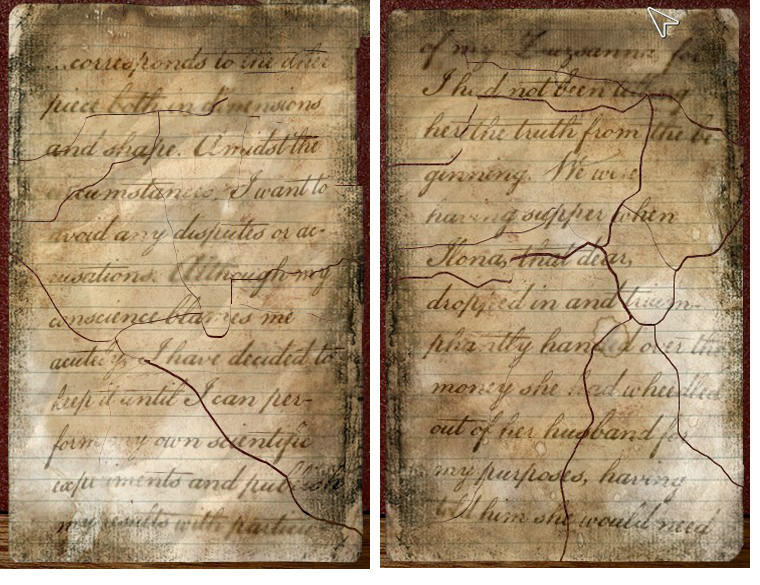 ...corresponds to the other
piece both in dimensions
and shape. Amidst the
circumstances, I want to
avoid any disputes or ac-
cusations. Although my
conscience blames me
acutely, I have decided to
keep it until I can per-
form my own scientific
experiments and publish
my results with
of my Zuzsanna, for
I had not been telling
her the truth from the be-
ginning. We were
having supper when
Ilona, that dear,
dropped in and trium-
phantly handed over the
money she had wheedled
out of her husband for
my purposes, having
told him she would need